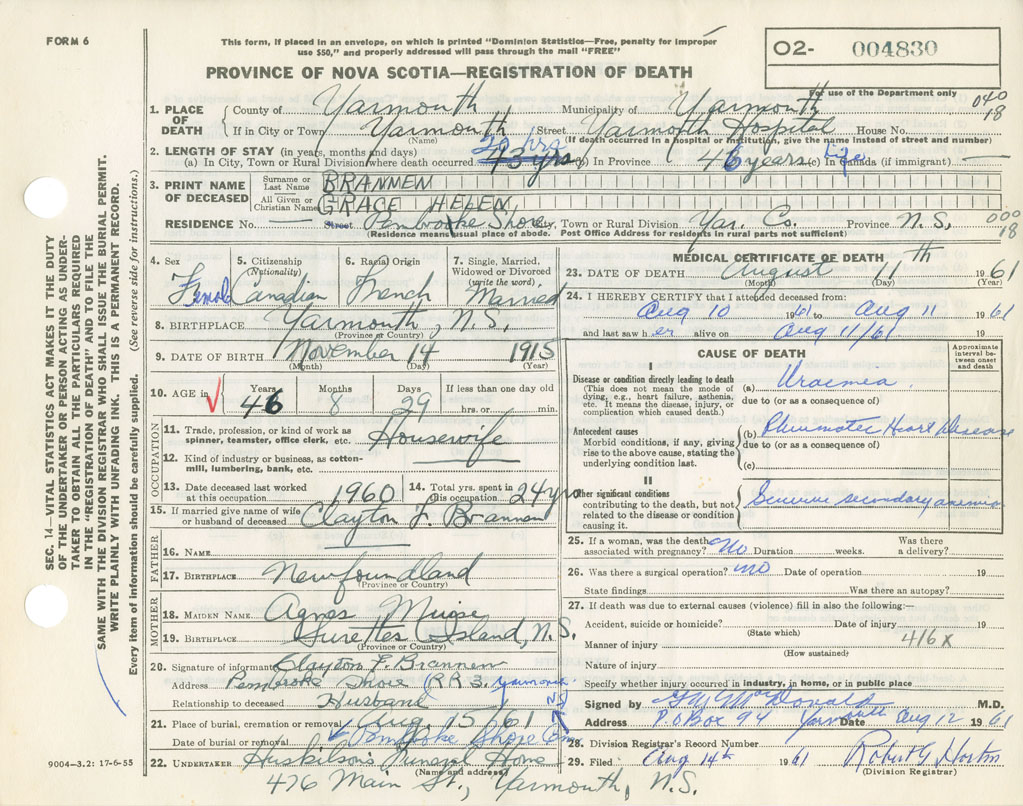 FORM 6
This form, if placed in an envelope, on which is printed "Dominion Statistics—Free, penalty for improper
use $50," and properly addressed will pass through the mail "FREE"
PROVINCE OF NOVA SCOTIA—REGISTRATION OF DEATH
O2- 004830
For use of the Department only
040
18
1. PLACE OF DEATH
County of Yarmouth Municipality of Yarmouth
If in City or Town Yarmouth Street Yarmouth Hospital House No.
(Name) (If death occurred in a hospital or institution, give the name instead of street and number)
2. LENGTH OF STAY (in years, months and days)
(a) In City, Town or Rural Division where death occurred 43 yrs 20 hrs (b) In Province 46 years (c) In Canada (if immigrant) Life —
3. PRINT NAME OF DECEASED
Surname or Last Name BRANNEN
All Given or Christian Names GRACE HELEN
RESIDENCE No. Street Pembrooke Shore City, Town or Rural Division Yar. Co. Province N.S. 000
18
(Residence means usual place of abode. Post Office Address for residents in rural parts not sufficient)
4. Sex Female
5. Citizenship (Nationality) Canadian
6. Racial Origin French
7. Single, Married, Widowed or Divorced (write the word) Married
8. BIRTHPLACE Yarmouth, N.S.
(Province or Country)
9. DATE OF BIRTH November 14 1915
(Month) (Day) (Year)
10. AGE in Years 46 Months 8 Days 29 If less than one day old hrs. or min.
OCCUPATION
11. Trade, profession, or kind of work as spinner, teamster, office clerk, etc. Housewife
12. Kind of industry or business, as cotton-mill, lumbering, bank, etc.
13. Date deceased last worked at this occupation 1960
14. Total yrs. spent in this occupation 24 yrs
15. If married give name of wife or husband of deceased Clayton F. Brannen
FATHER
16. NAME
17. BIRTHPLACE Newfoundland
(Province or Country)
MOTHER
18. MAIDEN NAME Agnes Muise
19. BIRTHPLACE Surettes Island, N.S.
(Province or Country)
20. Signature of informant Clayton F. Brannen
Address Pembroke Shore (RR3. Yarmouth N.S.
Relationship to deceased Husband
21. Place of burial, cremation or removal Aug. 15/61
Date of burial or removal Pembroke Shore Cem
22. UNDERTAKER Huskilson's Funeral Home
(Name and address)
476 Main St., Yarmouth, N.S.
MEDICAL CERTIFICATE OF DEATH
23. DATE OF DEATH August 11th 1961
(Month) (Day) (Year)
24. I HEREBY CERTIFY that I attended deceased from:
Aug 10 1961 to Aug 11 1961
and last saw her alive on Aug 11/61 19
CAUSE OF DEATH
Approximate interval between onset and death
I
Disease or condition directly leading to death
(This does not mean the mode of dying, e.g., heart failure, asthenia, etc. It means the disease, injury, or complication which caused death.)
(a) Uraemia
due to (or as a consequence of)
Antecedent causes
Morbid conditions, if any, giving rise to the above cause, stating the underlying condition last.
(b) Rheumatic Heart Disease
due to (or as a consequence of)
(c)
II
Other significant conditions
contributing to the death, but not related to the disease or condition causing it.
secondary anemia
25. If a woman, was the death associated with pregnancy? No Duration weeks. Was there a delivery?
26. Was there a surgical operation? no Date of operation 19
State findings Was there an autopsy?
27. If death was due to external causes (violence) fill in also the following:—
Accident, suicide or homicide? Date of injury 19
(State which)
Manner of injury 416 x
(How sustained)
Nature of injury
Specify whether injury occurred in industry, in home, or in public place
Signed by MacDonald M.D.
Address P.O Box 94 Yarmouth Date Aug 12 1961
28. Division Registrar's Record Number
29. Filed Aug 14th 1961 Robert G Horton
(Division Registrar)
SEC. 14—VITAL STATISTICS ACT MAKES IT THE DUTY
OF THE UNDERTAKER OR PERSON ACTING AS UNDER-
TAKER TO OBTAIN ALL THE PARTICULARS REQUIRED
IN THE "REGISTRATION OF DEATH" AND TO FILE THE
SAME WITH THE DIVISION REGISTRAR WHO SHALL ISSUE THE BURIAL PERMIT.
WRITE PLAINLY WITH UNFADING INK. THIS IS A PERMANENT RECORD.
Every item of information should be carefully supplied. (See reverse side for instructions.)
9004—3.2: 17-6-55